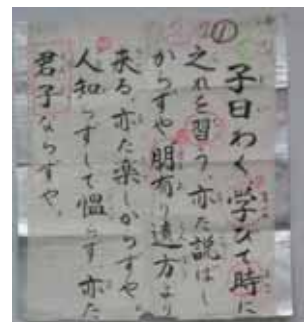 ①
子曰わく 学びて時に
之れを習う、亦た説ばし
からずや 朋有り遠方より
来る、亦た楽しからずや。
人知らずして慍らず亦た
君子ならずや。